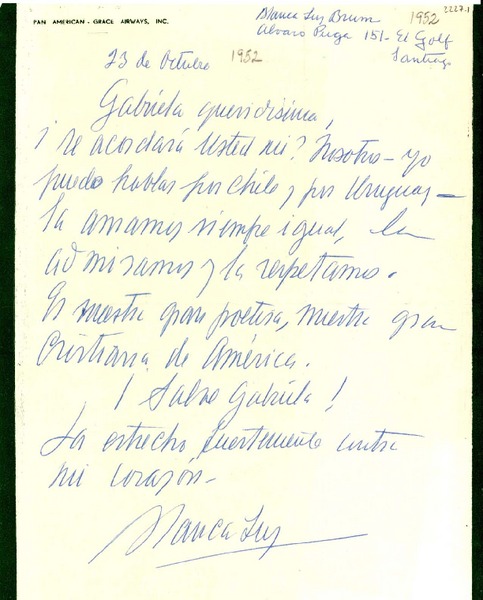 PAN AMERICAN - GRACE AIRWAYS, INC.
2227.1
Blanca Luz Brum 1952
Alvaro Puga 151 - El Golf
Santiago
23 de Octubre 1952
Gabriela queridísima,
¿ se acordará Usted mi? Nosotros - yo
puedo hablar por Chile y por Uruguay -
la amamos siempre igual, la
admiramos y la respetamos.
Es nuestra gran poetisa, nuestra gran
cristiana de América.
¡ Salve Gabriela !
La estrecho fuertemente contra
mi corazón -
Blanca Luz